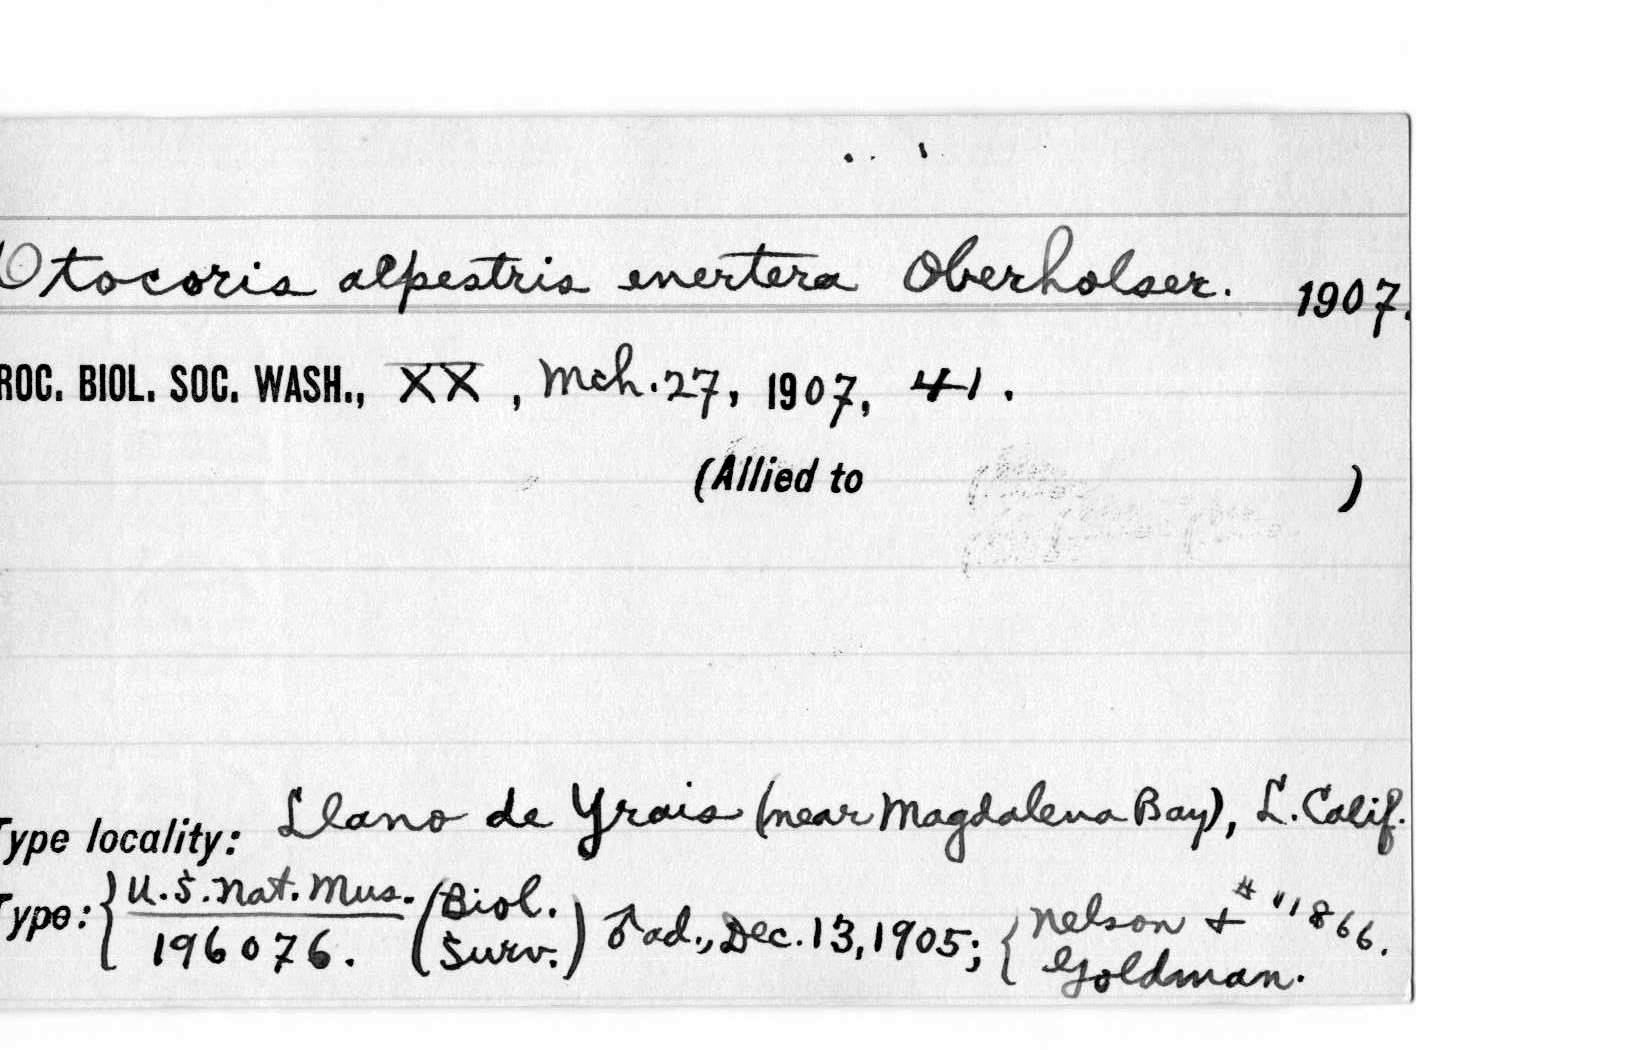 Otocoris alpestris enertera Oberholser. 1907.
ROC. BIOL. SOC. WASH., XX, Mch. 27, 1907, 41.
(Allied to )
Type locality: Llano de Yrais (near Magdalena Bay), L. Calif.
Type: { U.S. Nat. Mus. (Biol. ♂ ad., Dec. 13, 1905; { Nelson + # 11866.
196076. Surv.) Goldman.